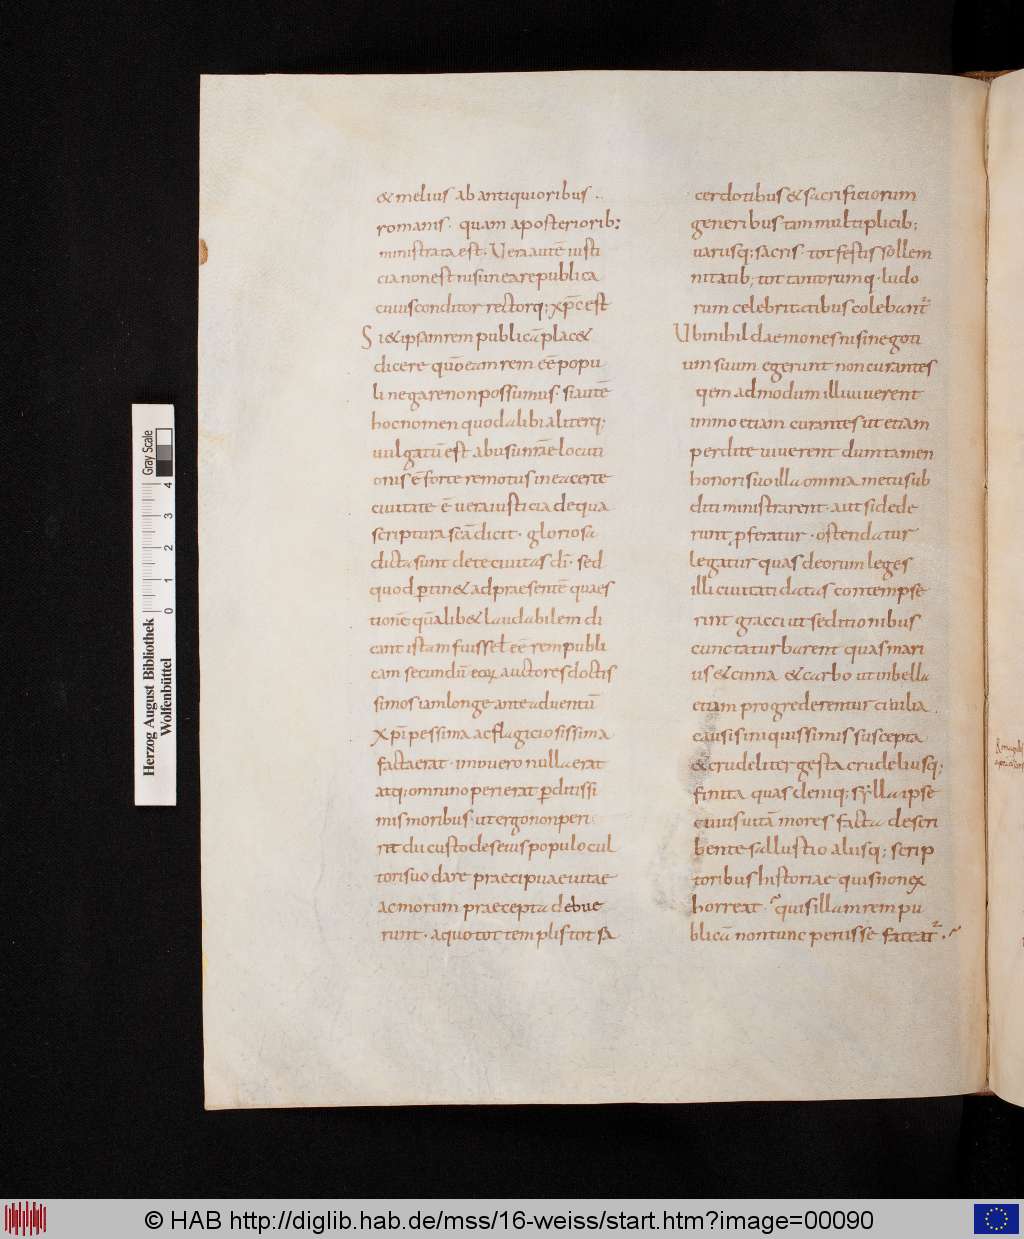 & melius ab antiquioribus ..
romanis · quam aposteriorib;
ministrata est · Uera autē iusti
cia non est nisi in ea republica
cuius conditor rectorq; xp̄c est
Si & ipsam rem publicā plac&
dicere quō eam rem eē popu
li negare non possumus · si autē
hoc nomen quod alibi aliterq;
uulgatū est ab usu nr̄ae locuti
onis ē forte remotus in ea certe
ciuitate ē uera iusticia de qua
scriptura scā dicit · gloriosa
dicta sunt de te ciuitas dī · sed
quod ptin& ad praesentē quaes
tionē quālib& laudabilem di
cant istam fuisse l̄ eē rem publi
cam secundū eoꝝ auctores doctis
simos iam longe ante aduentū
xpī pessima ac flagiciosissima
facta erat · immo uero nulla erat
atq; omnino perierat pditissi
mis moribus · ut ergo non peri
r& dii custodes eius populo cul
tori suo dare praecipuae uitae
ac morum praecepta debue
runt · a quo tot templis tot sa
cerdotibus & sacrificiorum
generibus tam multiplicib;
uarusq; sacris · tot festis sollem
nitatib; tot tantorumq · ludo
rum celebritatibus colebant̄
Ubi nihil daemones nisi negoti
um suum egerunt non curantes
qem admodum illi uiuerent
immo etiam curantes ut etiam
perdite uiuerent dum tamen
honori suo illa omnia metu sub
diti ministrarent · aut si dede
runt pferatur · ostendatur
legatur quas deorum leges
illi ciuitati datas contempse
rint gracci ut seditionibus
cuncta turbarent quas mari
us & cinna & carbo ut in bella
etiam progrederentur ciuilia
causis iniquissimis suscepta
& crudeliter gesta crudeliusq;
finita quas deniq; sylla ipse
cuius uitā mores facta descri
bente sallustio aliisq; scrip
toribus historiae quis non ex
horreat · quis illam rem pu
blicā non tunc perisse fateat̄ ·
Herzog August Bibliothek
Wolfenbüttel
0 1 2 3 4
Gray Scale
© HAB http://diglib.hab.de/mss/16-weiss/start.htm?image=00090